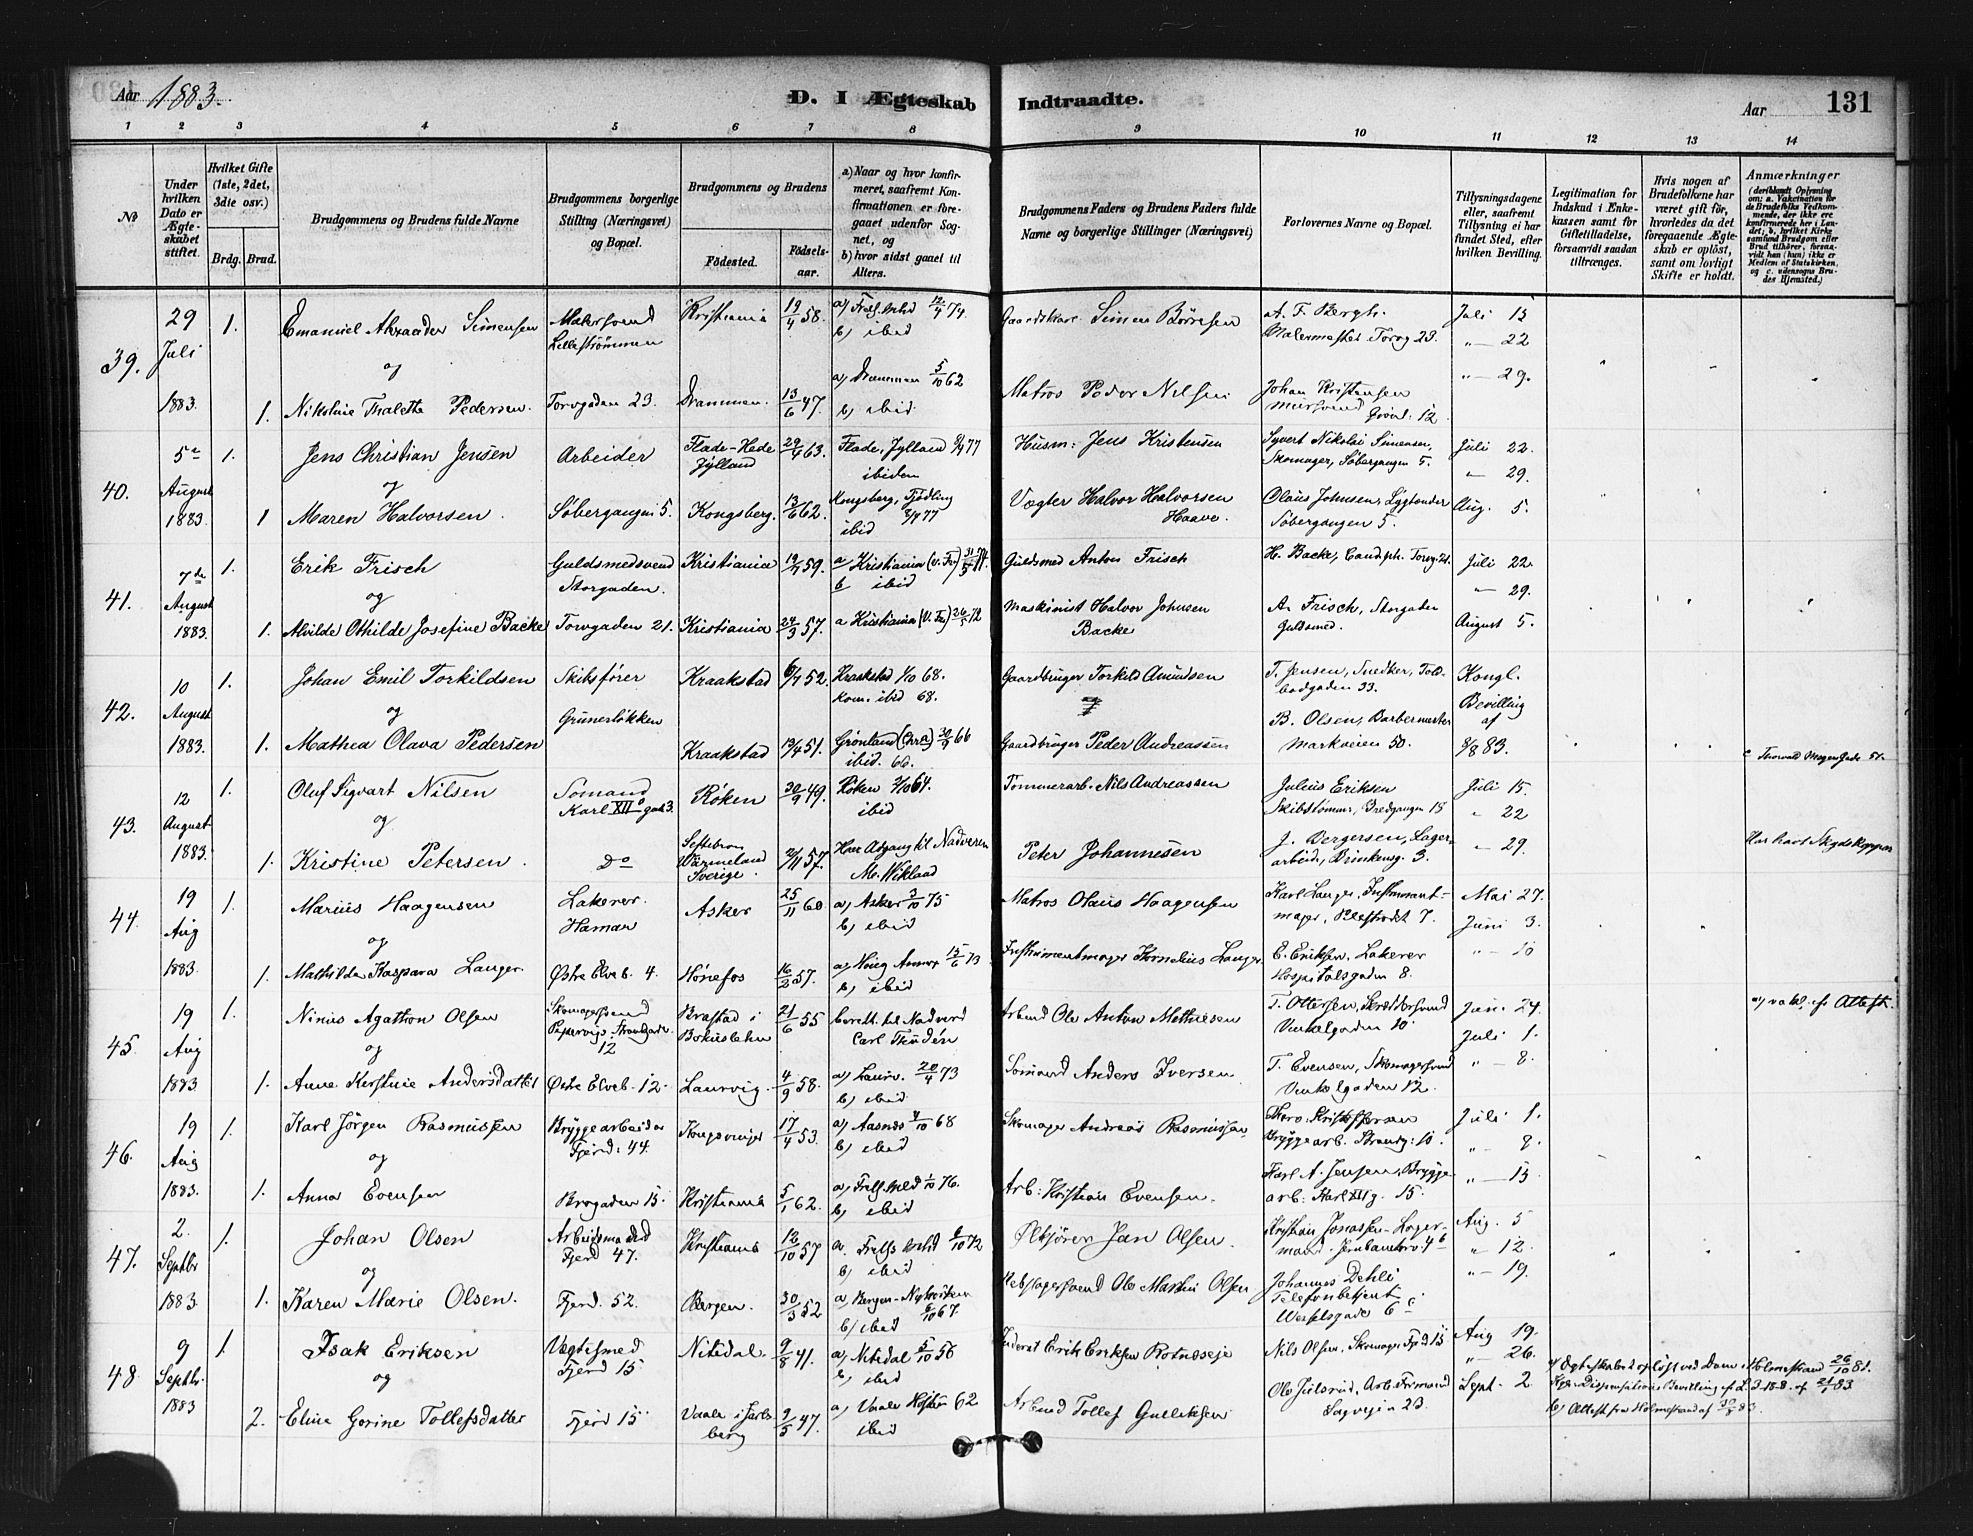 Aar 1883. D. I Ægteskab Indtraadte. Aar 131
1 2 3 4 5 6 7 8 9 10 11 12 13 14
No
Under hvilken Dato er Ægteskabet stiftet.
Hvilket Gifte (1ste, 2det, 3die osv.)
Brdg. Brud.
Brudgommens og Brudens fulde Navne
Brudgommens borgerlige Stilling (Næringsvei) og Bopæl.
Brudgommens og Brudens
Födested. Födsels-aar.
a) Naar og hvor konfirmeret, saafremt Konfirmationen er foregaaet udenfor Sognet, og
b) hvor sidst gaaet til Alters.
Brudgommens Faders og Brudens Faders fulde Navne og borgerlige Stillinger (Næringsvei)
Forlovernes Navne og Bopæl.
Tillysningsdagene eller, saafremt Tillysning ei har fundet Sted, efter hvilken Bevilling.
Legitimation for Indskud i Enkekassen samt for Giftetilladelse, forsaavidt saadan tiltrænges.
Hvis nogen af Brudefolkene har været gift för, hvorledes da det foregaaende Ægteskab er oplöst, samt om lovligt Skifte er holdt.
Anmærkninger (deriblandt Oplysning om: a. Vakcination for de Brudefolks Vedkommende, der ikke ere konfirmerede her i Landet; b. hvilket Kirkesamfund Brudgom eller Brud tilhörer, forsaavidt han (hun) ikke er Medlem af Statskirken, og c. udensogns Brudes Hjemsted.)
39. 29 Juli 1883. 1. Emanuel Alexander Simensen Malersvend Lillestrømmen Kristiania 19/4 58. a) Frels. Mhd 12/4 74. b) ibid Gaardskarl Simen Børresen A. F. Bergh, Malermester Torvg 23. Juli 15
" 22
og
" 29.
1. Nikoline Thalette Pedersen. Torvgaden 23. Drammen. 13/6 47. a) Drammen 5/10 62 b) ibid. Matros Peder Nilsen Johan Kristensen Mursvend 12
40. 5te August 1883. 1. Jens Christian Jensen Arbeider Flade-Hede Jylland 29/4 63. Flade, Jylland 77 ibidem Husm: Jens Kristensen Syvert Nikolai Simensen, Skomager, Søbergangen 5. Juli 22.
" 29.
og
1 Maren Halvorsen. Søbergangen 5. Kongsberg. 13/6 62. Kongsberg, 77 ibid Vægter Halvor Halvorsen Haave. Olaus Johnsen, Lygtander Søbergangen 5. Aug. 5.
41. 7de August 1883. 1. Erik Frisch Guldsmedsvend Storgaden. Kristiania 59. a Kristiania (V. Fr) b ibid Guldsmed Anton Frisch H. Backe, Cand. ph. Torvg. 21. Juli 22.
" 29.
og
1. Alvilde Othilde Josefine Backe Torvgaden 21. Kristiania 24/3 57. a Kristiania (V. Fr) 26/5 72 Maskinist Halvor Johnsen Backe A. Frisch, Storgaden Guldsmed. August 5.
42. 10 August 1883. 1. Johan Emil Torkildsen Skibsfører Grünerløkken Kraakstad 52. Kraakstad 1/10 68. kom. ibid 68. Gaardbruger Torkild Amundsen T. Jensen, Snedker, Toldbodgaden 33. Kongl. Bevilling af 83.
og
1. Mathea Olava Pedersen Kraakstad 51. Grønland (Chra) 30/9 66 ibid. 66. Gaardbruger Peder Andreassen B. Olsen, Barbermester Markveien 50. c Thorvald Meyers Gade 51.
43. 12 August 1883. 1. Oluf Sigvart Nilsen Sømand Karl XIIs gade 3. Røken 30/9 49. Røken 2/10 64. ibid Tømmerarb. Nils Andreassen Julius Eriksen Skibstømmer, Bredgangen 15 Juli 15.
" 22
og
1. Kristine Petersen. do Wärmeland Sverige. 2/11 57. Har Adgang til Nadveren Peter Johannesen J. Bergersen, Lagerarbeider, Brinkeng. 3. " 29.
44. 19 Aug 1883. 1. Marius Haagensen Lakerer. Hamar Asker 25/11 60 a) Asker 3/10 75 b) ibid Matros Olaus Haagensen Karl Langer, Instrumentmager, 7. Mai 27.
Juni 3.
og
1. Mathilde Kaspara Langer Østre Elveb. 4. Hönefos 16/2 57. a) Haug Annex 15/6 73 b) ibid Instrumentmager Kornelius Langer E. Eriksen, Lakerer Hospitalsgaden 8. " 10
45. 19 Aug 1883 1. Ninius Agathon Olsen Skomagersvend Pipervigs. Strandgade. 12 Brastad i Bohuslehn 21/6 55 beretti. til Nadverd Carl Arbmd Ole Anton Mathiesen T. Ottersen, Skræddersvend Vinkelgaden 10 Juni 24.
Juli 1.
a) vakc. if. Attest.
og
1. Anne Kirstine Andersdatter Østre Elveb. 12. Laurvig. 4/9 58. a) Laurv. 20/4 73 b) ibid Sömand Anders Iversen T. Evensen, Skomagersvend Vinkelgaden 12. " 8.
46. 19 Aug 1883. 1. Karl Jörgen Rasmussen Bryggearbeider Fjerd. 44. Kongsvinger 17/4 53. a) Aasnes 4/10 68 b) ibid Skomager Andreas Rasmussen Kristoffersen Bryggearb. Strandg. 10. Juli 1.
" 8.
og
1. Anna Evensen Brogaden 15. Kristiania 5/1 62. a) Frels. Mhd 1/10 76. b) ibid Arb: Kristian Evensen. Karl A. Jensen, Bryggearb: Karl XII g. 15. " 15
47. 2. Septbr 1883. 1. Johan Olsen Arbeidsmand Fjerd 47. Kristiania 12/10 57 a. Frels. Mhd 6/10 72 b) ibid Ölkjörer Jan Olsen. Kristian Jonassen Lagermand. Jernbanetorv 4b Aug. 5
" 12.
og
1. Karen Marie Olsen. Fjerd. 52. Bergen. 30/3 52 a) Bergen Nykirken 6/10 67 b) ibid Rebslagersvend Ole Martin Olsen Johannes Dehli, Telefonbetjent Wesselsgade 6c " 19.
48. 9 Septbr. 1883 1. Isak Eriksen Vægtsmed Fjerd 15 Nitedal. 9/8 41. a) Nitedal 5/10 56 b) ibid Inderst Erik Eriksen Rotneseje Nils Olsen, Skomager Fjd 15 Aug 19.
" 26.
og
2. Eline Gorine Tollefsdatter Fjerd 15 Vaale i Jarlsberg 9/5 47 a) Vaale Høsten 62 ibid Arbmd Tollef Gulliksen Ole Julsrud, Arb. Formand Sagveien 23. Sept. 2. a) Ægteskabet opløst ved Dom i Holmestrand 26/10 81. Kgl. Dispensations Bevilling 83 b) Attest fra Holmestrand af 30/8 83.